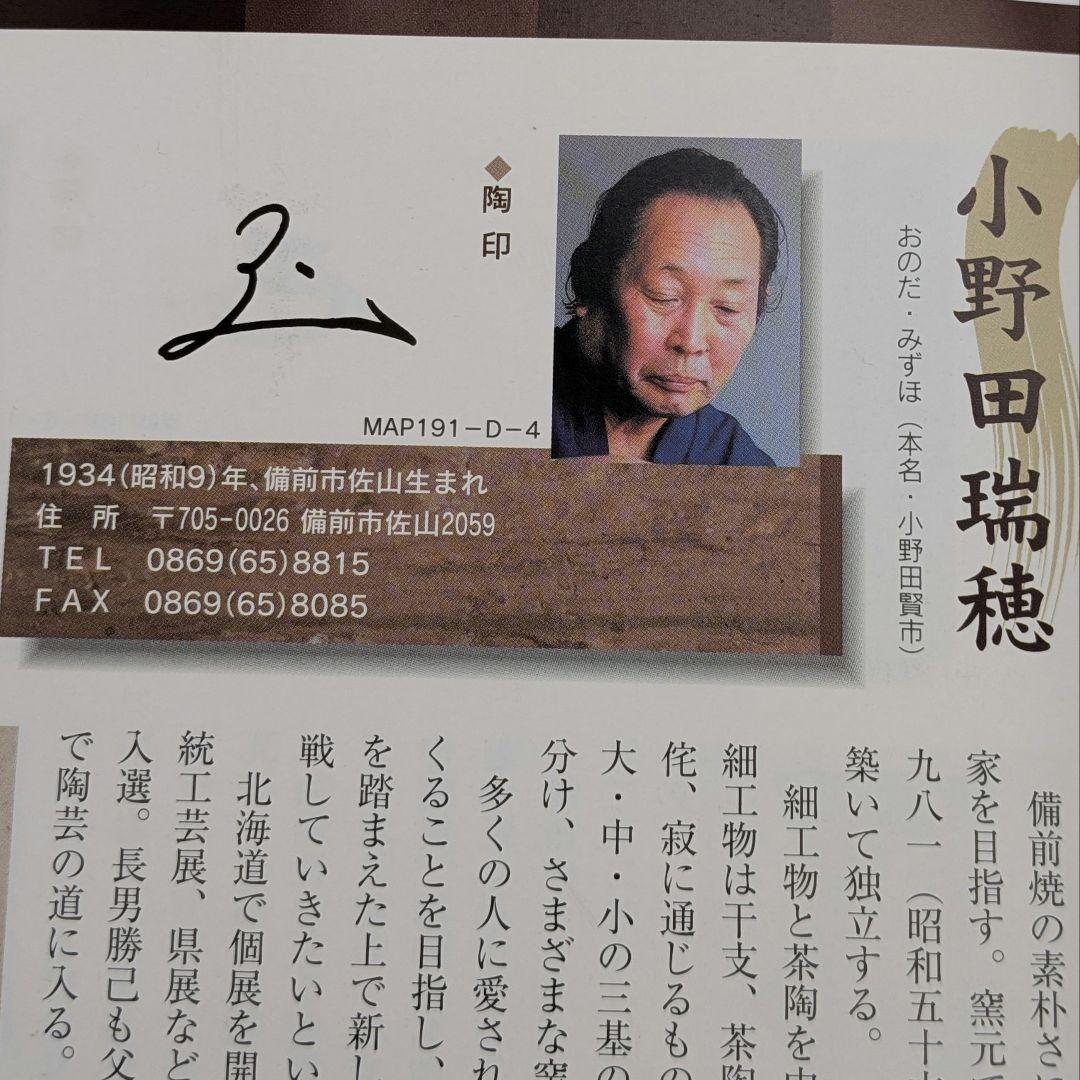 小野田瑞穂
おのだ・みずほ(本名・小野田賢市)
◆陶印
MAP191-D-4
1934(昭和9)年、備前市佐山生まれ
住 所 〒705-0026 備前市佐山2059
TEL 0869(65)8815
FAX 0869(65)8085
備前焼の素朴さに
家を目指す。窯元で
九八一(昭和五十六
築いて独立する。
細工物と茶陶を中
細工物は干支、茶陶
侘、寂に通じるもの
大・中・小の三基の
分け、さまざまな窯
多くの人に愛され
くることを目指し、
を踏まえた上で新し
戦していきたいとい
北海道で個展を開
統工芸展、県展など
入選。長男勝己も父
で陶芸の道に入る。